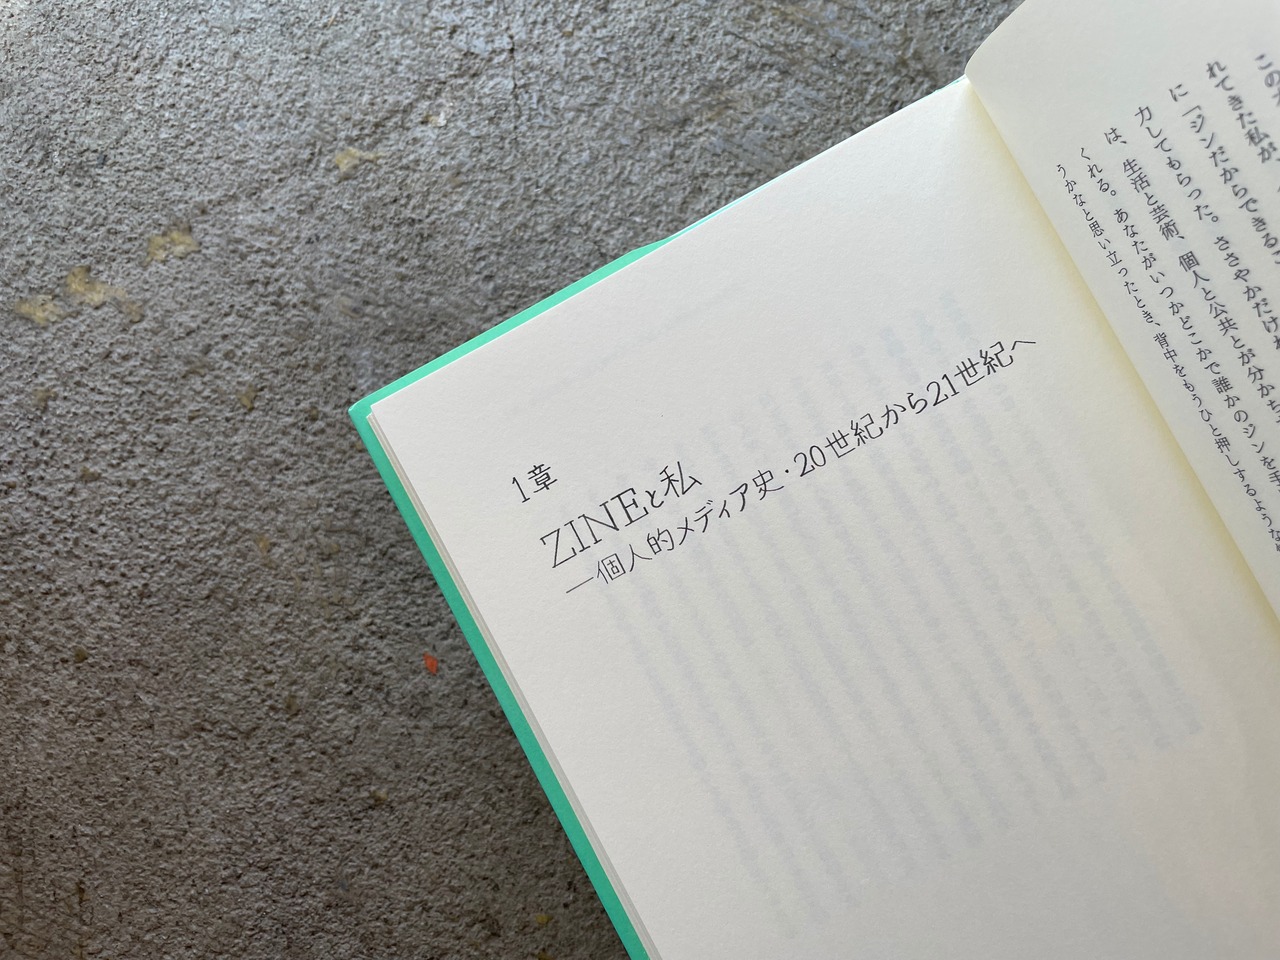 この
れてきた私が
に「ジンだからできるこ
力してもらった。ささやかだけれ
は、生活と芸術、個人と公共とが分かち
くれる。あなたがいつかどこかで誰かのジンを手
うかなと思い立ったとき、背中をもうひと押しするような
1章
ZINEと私
―個人的メディア史・20世紀から21世紀へ